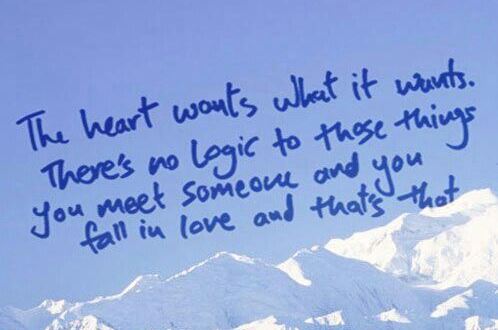 The heart wants what it wants.
There's no logic to those things
you meet someone and you
fall in love and that's that